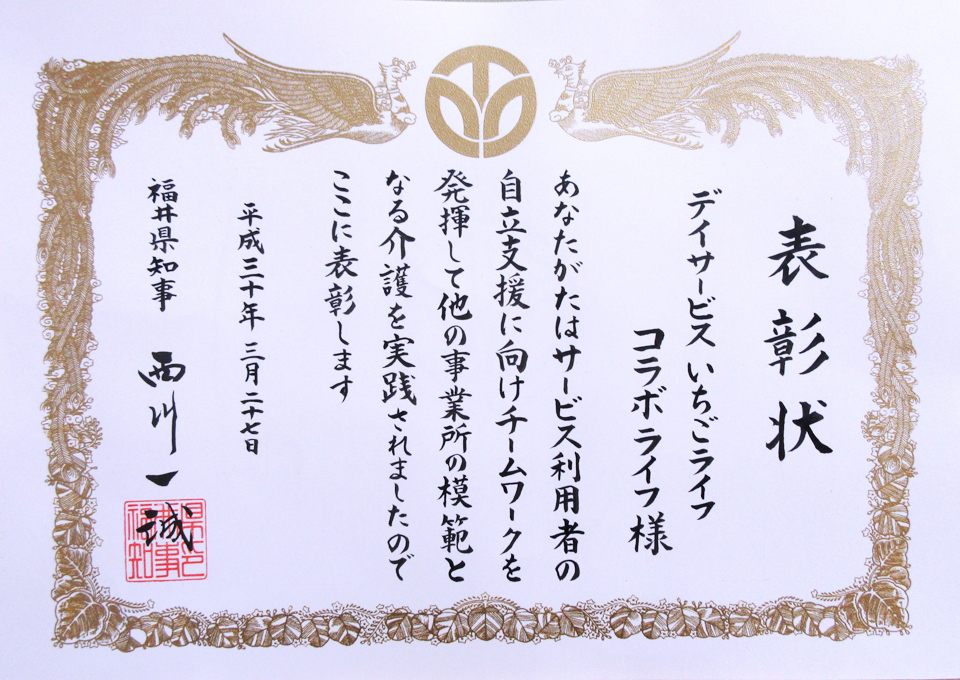 表彰状
デイサービス いちごライフ
コラボライフ様
あなたがたはサービス利用者の
自立支援に向けチームワークを
発揮して他の事業所の模範と
なる介護を実践されましたので
ここに表彰します
平成三十年 三月 二十七日
福井県知事 西川一誠